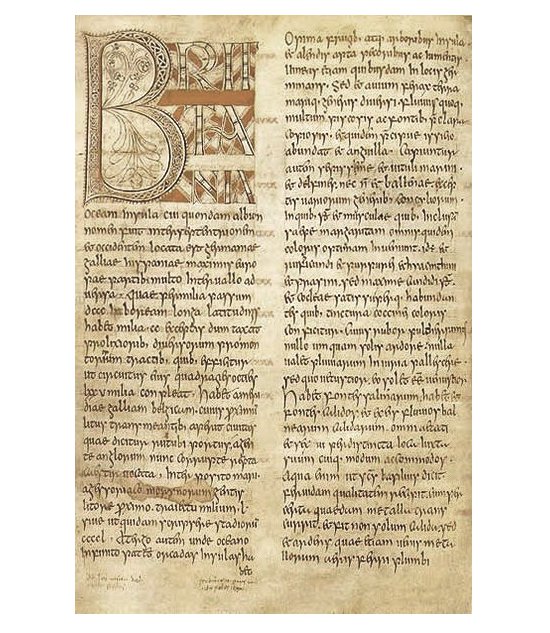 BRIT
TA
NIA
oceani insula cui quondam albion
nomen fuit inter septentrionem
et occidentem locata est germaniae
galliae hispaniae maximis euro
pae partibus multo interuallo ad
uersa. Quae per milia passuum
dccc in boream longa latitudinis
habet milia .cc. exceptis dum taxat
prolixiorib; diuersorum promon
toriorum tractib; quib; efficitur
ut circuitus eius quadragies octies
lxxv milia conpleat. Habet a meri
die galliam belgicam cuius proximum
litus transmeantib; aperit ciuitas
quae dicitur rutubi portus a gen
te anglorum nunc corrupte repta
caestir uocata. Interposito mari
a gessoriaco morynorum gentis
litore proximo traiectu milium .l.
siue ut quidam scripsere stadiorum
ccccl. A tergo autem unde oceano
infinito patet orcadas insulas ha
bet
Opima frugib; atq; arborib; insula
et alendis apta pecorib; ac iumentis
uineas etiam quibusdam in locis ger
minans. Sed et auium ferax terra
mariq; generis diuersi. Fluuiis quoq;
multum piscosis ac fontib; praeclara
copiosis. et quidem praecipue issicio
abundat et anguilla. Capiuntur
autem saepissime et uituli marini
et delfines nec non et balenae. excep
tis uariorum generib; concyliorum
in quib; sunt et musculae quib; inclusam
saepe margaritam omnis quidem
coloris optimam inueniunt. id est
et rubicundi et purpurei et hyacinthini
et prasini. sed maxime candidi. Sunt
et cocleae satis superq; habundan
tes quib; tinctura coccinei coloris
conficitur. Cuius rubor pulcherrimus
nullo umquam solis ardore. nulla
ualet pluuiarum iniuria pallescere.
sed quo uetustior. eo solet esse uenustior
Habet fontes salinarum. habet et
fontes calidos. et ex eis fluuios bal
nearum calidarum. omni aetati
et sexui per distincta loca iuxta
suum cuiq; modum accommodos.
Aqua enim ut scs basilius dicit.
feruidam qualitatem recipit. cum per
certa quaedam metalla trans
currit. et fit non solum calida. sed
et ardens. quae etiam uenis me
tallorum aeris ferri plumbi